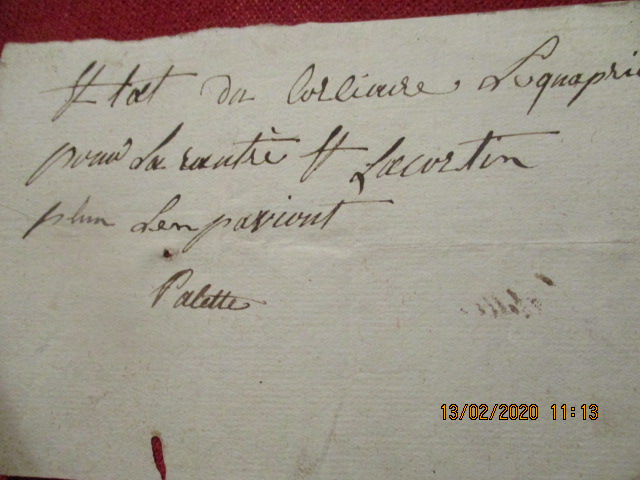 Etat du Corliaire Lequapri
pour La rantrè Et Lacortin
plun Lenpaviont
Palette
13/02/2020 11:13